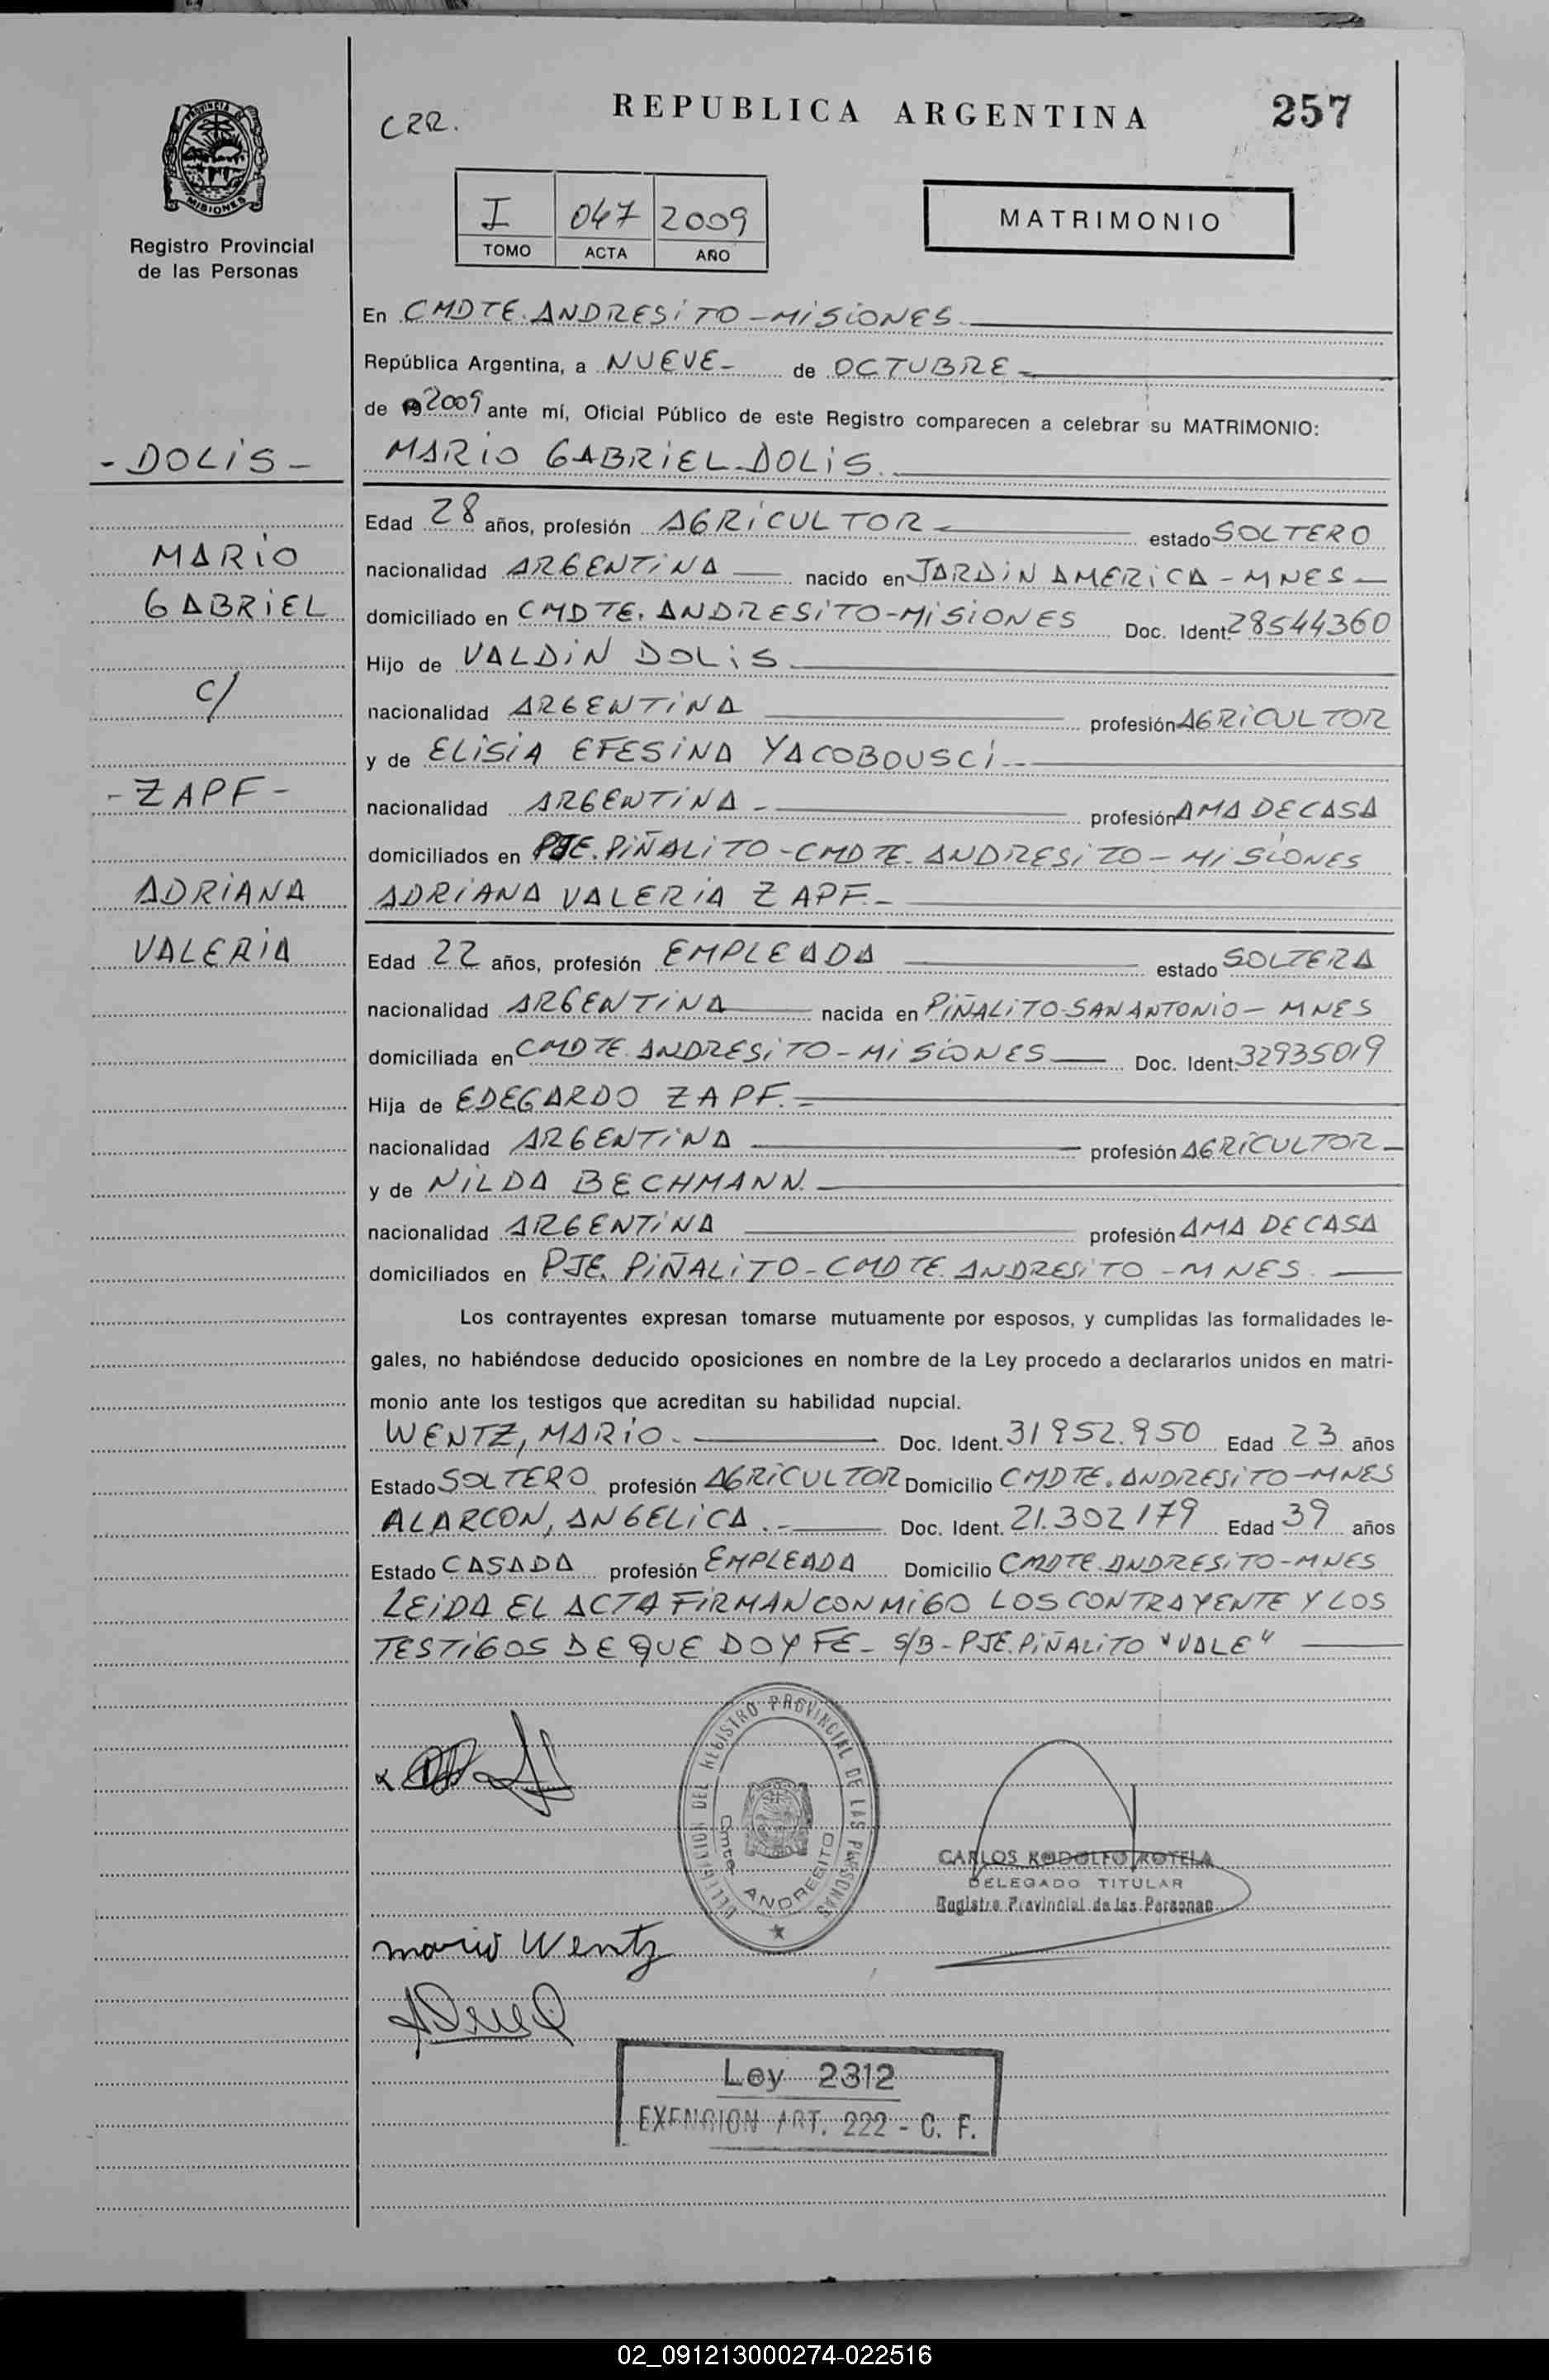 REPUBLICA ARGENTINA
257
CRR.
PROVINCIA
MISIONES
Registro Provincial
de las Personas
I 047 2009
TOMO ACTA AÑO
MATRIMONIO
En CMDTE. ANDRESiTO - MiSiONES
República Argentina, a NUEVE - de OCTUBRE -
de 2009 ante mí, Oficial Público de este Registro comparecen a celebrar su MATRIMONIO:
- DOLiS -
MARiO GABRiEL DOLiS
Edad 28 años, profesión AGRiCULTOR - estado SOLTERO
MARiO
nacionalidad ARGENTiNA nacido en JARDiN AMERiCA - MNES -
GABRiEL
domiciliado en CMDTE. ANDRESiTO - MiSiONES Doc. Ident. 28544360
Hijo de VALDiN DOLiS
C/
nacionalidad ARGENTiNA profesión AGRiCULTOR
y de ELiSiA EFESiNA YACOBOUSCi -
- ZAPF -
nacionalidad ARGENTiNA - profesión AMA DE CASA
domiciliados en PJE. PiÑALiTO - CMDTE. ANDRESiTO - MiSiONES
ADRiANA
ADRiANA VALERiA ZAPF. -
VALERiA
Edad 22 años, profesión EMPLEADA estado SOLTERA
nacionalidad ARGENTiNA nacida en PiÑALiTO SAN ANTONiO - MNES
domiciliada en CMDTE. ANDRESiTO - MiSiONES Doc. Ident. 32935019
Hija de EDEGARDO ZAPF. -
nacionalidad ARGENTiNA profesión AGRiCULTOR -
y de NiLDA BECHMANN.
nacionalidad ARGENTiNA profesión AMA DE CASA
domiciliados en PJE. PiÑALiTO - CMDTE. ANDRESiTO - MNES.
Los contrayentes expresan tomarse mutuamente por esposos, y cumplidas las formalidades le-
gales, no habiéndose deducido oposiciones en nombre de la Ley procedo a declararlos unidos en matri-
monio ante los testigos que acreditan su habilidad nupcial.
WENTZ, MARiO. Doc. Ident. 31952.950 Edad 23 años
Estado SOLTERO profesión AGRiCULTOR Domicilio CMDTE. ANDRESiTO - MNES
ALARCON, ANGELiCA. - Doc. Ident. 21.302179 Edad 39 años
Estado CASADA profesión EMPLEADA Domicilio CMDTE. ANDRESiTO - MNES
LEiDA EL ACTA FiRMAN CONMiGO LOS CONTRAYENTE Y LOS
TESTiGOS DE QUE DOY FE - S/B - PJE. PiÑALiTO "VALE"
DELEGACION DEL REGISTRO PROVINCIAL DE LAS PERSONAS
Cmte ANDRESITO
CARLOS RODOLFO ROTELA
DELEGADO TITULAR
Registro Provincial de las Personas
mario Wentz
Ley 2312
EXENCION ART. 222 - C. F.
02_091213000274-022516